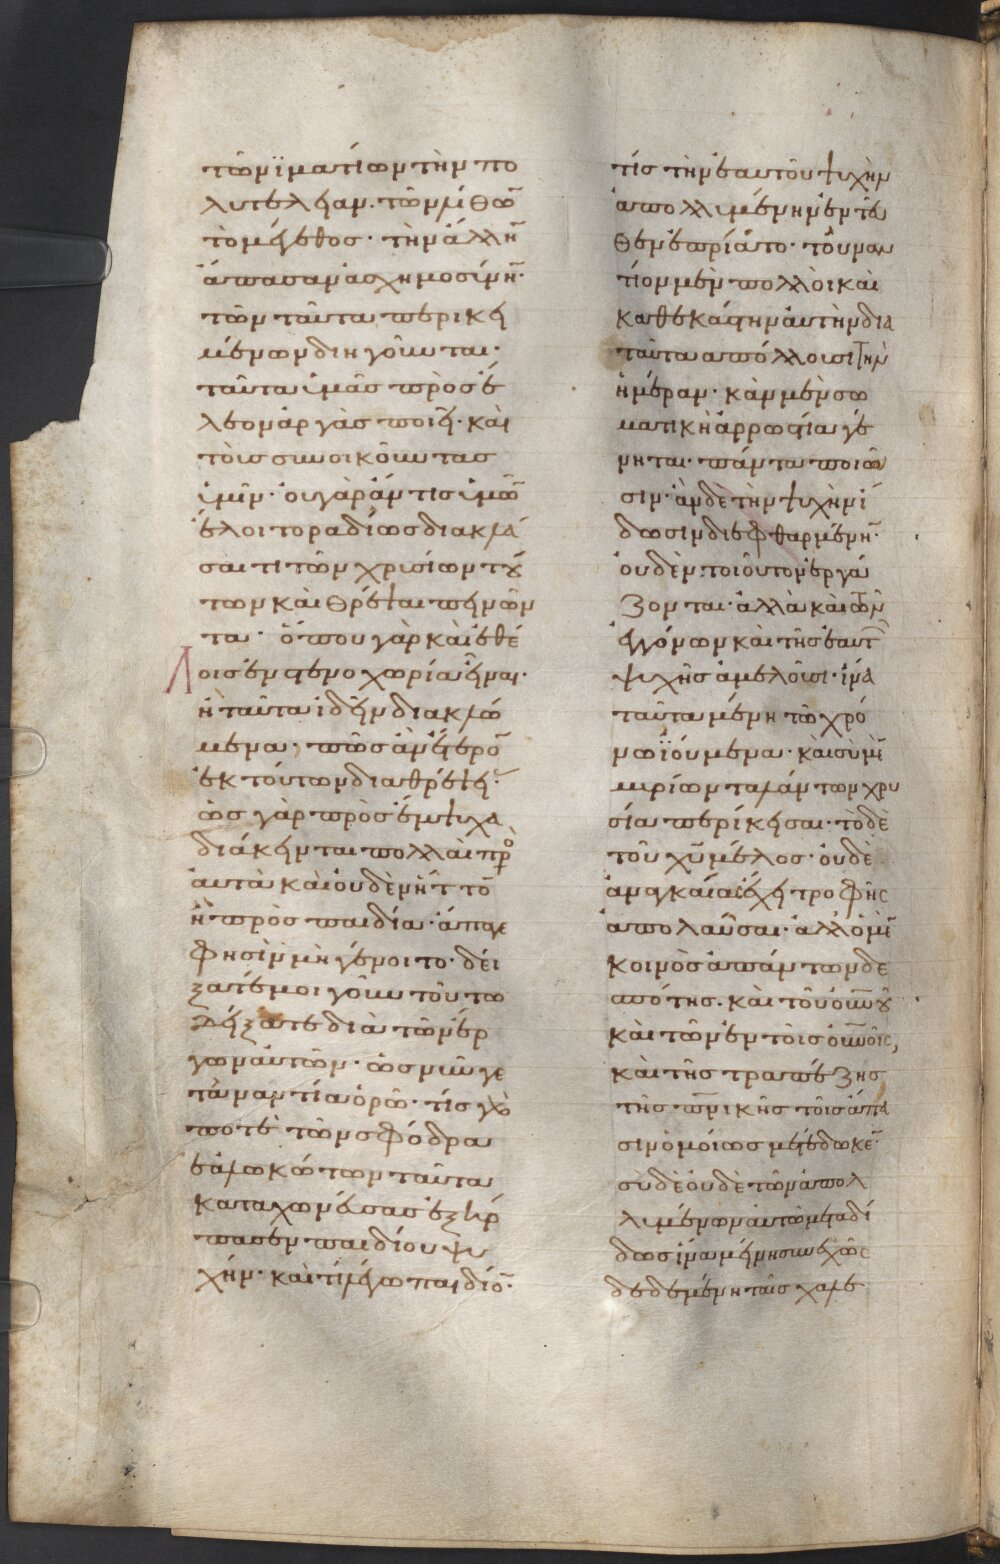 τῶν ϊματίων τὴν πο
λυτέλειαν. τῶν λίθων
τὸ μέγεθος· τὴν ἄλλην
ἅπασαν ἀσχημοσύνην·
τῶν ταῦτα περικει
μένων διηγοῦνται·
ταῦτα ὑμᾶς πρὸς ἔ
λεον ἀργὰς ποιεῖ· καὶ
τοὺς συνοικοῦντας
ὑμῖν· οὐ γὰρ ἄν τις ὑμῶν
ἕλοιτο ραδίως διακλά
σαι τι τῶν χρυσίων τού
των καὶ θρέψαι πεινῶν
τα· ὅπου γὰρ καὶ ἕθε
λοις ἐν στενοχωρία εἶναι·
ἢ ταῦτα ἰδεῖν διακλώ
μενα· πῶς ἂν ἕτερον
ἐκ τούτων διαθρέψει·
ὡς γὰρ πρὸς ἔμψυχα
διάκεινται πολλαὶ πρὸς
αὐτὰ καὶ οὐδὲν ἧττον
ἢ πρὸς παιδία· ἄπαγε
φησὶν μὴ γένοιτο· δεί
ξατέ μοι γοῦν τοῦτο
δείξατε διὰ τῶν ἔρ
γων αὐτῶν· ὡς νῦν γε
τἀναντία ὁρῶ· τίς γὰρ
ποτὲ τῶν σφόδρα
ἑαλωκότων ταῦτα
καταχωνεύσας ἐξήρ
πασεν παιδίου ψυ
χήν· καὶ τί λέγω παιδίου·
τίς τὴν ἑαυτοῦ ψυχὴν
ἀπολλυμένην ἐντεῦ
θεν ἐπρίατο· τοὐναν
τίον μὲν πολλοὶ καὶ
καθεκάστην αὐτὴν διὰ
ταῦτα ἀπόλλουσι τὴν
ἡμέραν· κἂν μὲν σω
ματικὴ ἀρρωστία γέ
νηται· πάντα ποιοῦ
σιν· ἂν δὲ τὴν ψυχὴν ἴ
δωσιν διεφθαρμένην·
οὐδὲν τοιοῦτον ἐργά
ζονται· ἀλλὰ καὶ τῶν
ἐγγόνων καὶ τῆς ἑαυτῶν
ψυχῆς ἀμελοῦσι· ἵνα
ταῦτα μένη τῶ χρό
νω ϊούμενα· καὶ σὺ μὲν
μυρίων ταλάντων χρυ
σία περίκεισαι· τὸ δὲ
τοῦ χῦ μέλος· οὐδὲ
ἀναγκαίας ἔχει τροφῆς
ἀπολαῦσαι· ἀλλ ὁ μὲν
κοινὸς ἁπάντων δε
σπότης. καὶ τοῦ οὐνοῦ
καὶ τῶν ἐν τοῖς οὐνοῖς,
καὶ τῆς τραπέζης
τῆς πνικῆς τοῖς ἅπα
σιν ὁμοίως μετέδωκεν·
σὺ δὲ οὐδὲ τῶν ἀπολ
λυμένων αὐτῶ μεταδί
δως ἵνα μείνης συνεχῶς
δεδεμένη ταῖς χαλε